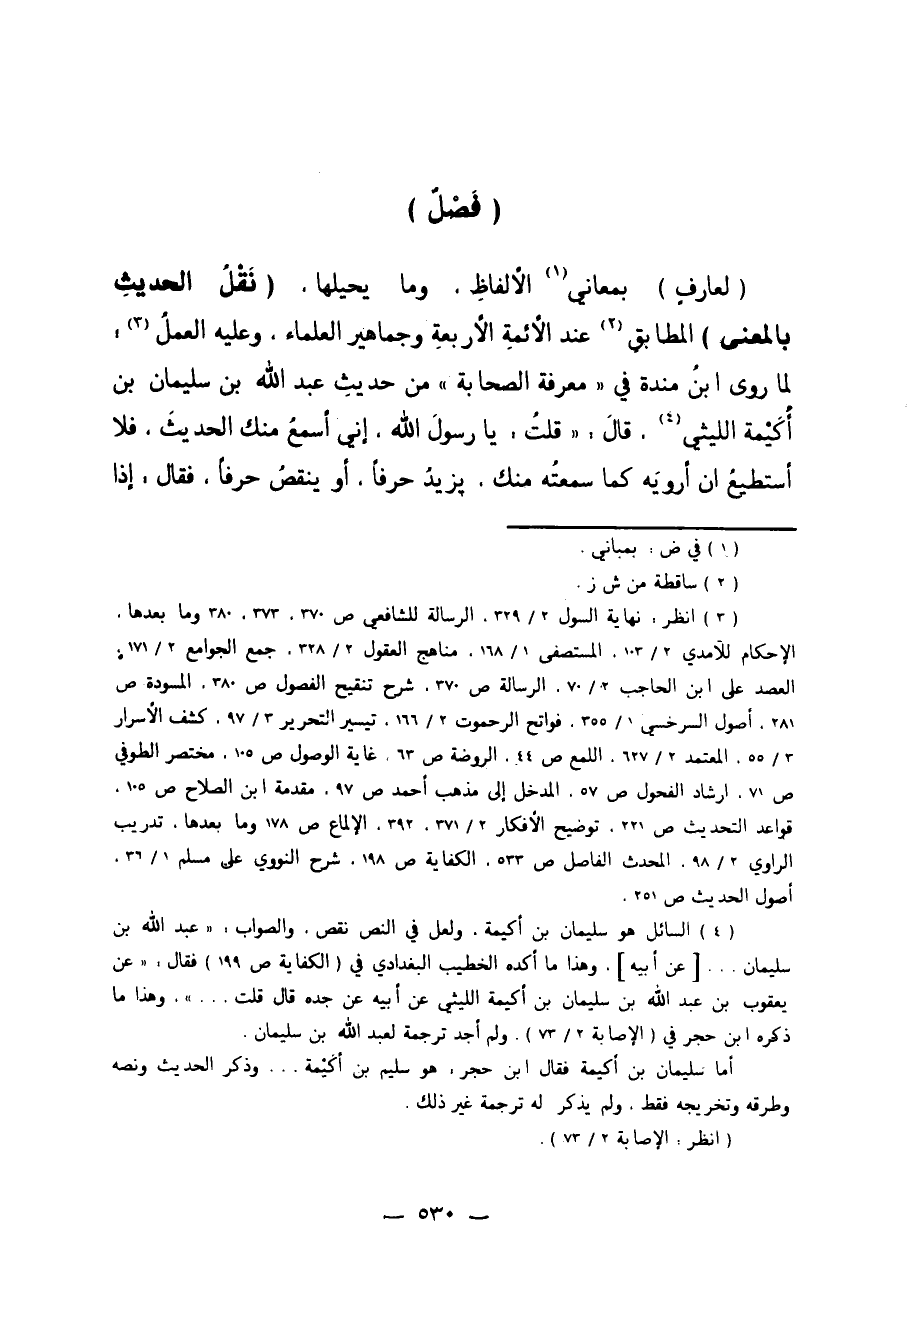 ( فَصْلٌ )
( لعارفٍ ) بمعاني(١) الألفاظِ ، وما يحيلها ، ( نَقْلُ الحديثِ
بالمعنى ) المطابقِ(٢) عند الأئمةِ الأربعةِ وجماهير العلماء ، وعليه العملُ(٣) ؛
لما روى ابنُ مندة في « معرفة الصحابة » من حديثِ عبد الله بن سليمان بن
أُكَيْمة الليثي(٤) ، قالَ : « قلتُ : يا رسولَ الله ، إني أسمعُ منك الحديثَ ، فلا
أستطيعُ ان أرويَه كما سمعتُه منك ، يزيدُ حرفاً ، أو ينقصُ حرفاً ، فقال : إذا
( ١ ) في ض : بمباني .
( ٢ ) ساقطة من ش ز .
( ٣ ) انظر : نهاية السول ٢ / ٣٢٩ ، الرسالة للشافعي ص ٣٧٠ ، ٣٧٣ ، ٣٨٠ وما بعدها ،
الإحكام للآمدي ٢ / ١٠٣ ، المستصفى ١ / ١٦٨ ، مناهج العقول ٢ / ٣٢٨ ، جمع الجوامع ٢ / ١٧١ ،
العضد على ابن الحاجب ٢ / ٧٠ ، الرسالة ص ٣٧٠ ، شرح تنقيح الفصول ص ٣٨٠ ، المسودة ص
٢٨١ ، أصول السرخسي ١ / ٣٥٥ ، فواتح الرحموت ٢ / ١٦٦ ، تيسير التحرير ٣ / ٩٧ ، كشف الأسرار
٣ / ٥٥ ، المعتمد ٢ / ٦٢٧ ، اللمع ص ٤٤ ، الروضة ص ٦٣ ، غاية الوصول ص ١٠٥ ، مختصر الطوفي
ص ٧١ ، ارشاد الفحول ص ٥٧ ، المدخل إلى مذهب أحمد ص ٩٧ ، مقدمة ابن الصلاح ص ١٠٥ ،
قواعد التحديث ص ٢٢١ ، توضيح الأفكار ٢ / ٣٧١ ، ٣٩٢ ، الإلماع ص ١٧٨ وما بعدها ، تدريب
الراوي ٢ / ٩٨ ، المحدث الفاصل ص ٥٣٣ ، الكفاية ص ١٩٨ ، شرح النووي على مسلم ١ / ٣٦ ،
أصول الحديث ص ٢٥١ .
( ٤ ) السائل هو سليمان بن أكيمة ، ولعل في النص نقص ، والصواب : « عبد الله بن
سليمان ... [ عن أبيه ] ، وهذا ما أكده الخطيب البغدادي في ( الكفاية ص ١٩٩ ) فقال : « عن
يعقوب بن عبد الله بن سليمان بن أكيمة الليثي عن أبيه عن جده قال قلت ... » ، وهذا ما
ذكره ابن حجر في ( الإصابة ٢ / ٧٣ ) ، ولم أجد ترجمة لعبد الله بن سليمان .
أما سليمان بن أكيمة فقال ابن حجر : هو سليم بن أُكَيْمة ... وذكر الحديث ونصه
وطرقه وتخريجه فقط ، ولم يذكر له ترجمة غير ذلك .
( انظر : الإصابة ٢ / ٧٣ ) .
— ٥٣٠ —